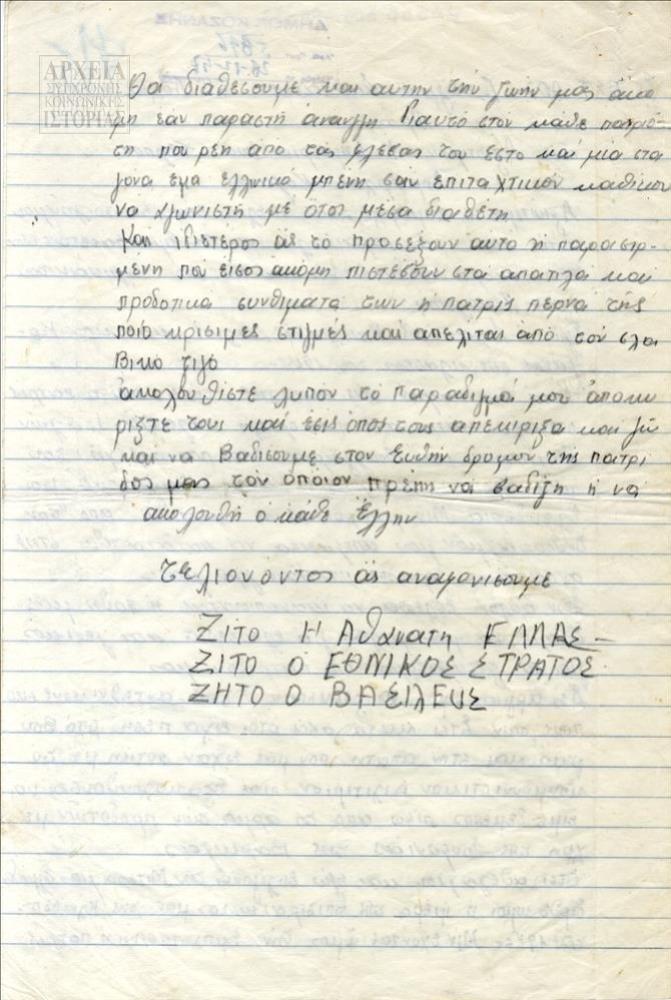 ΑΡΧΕΙΑ
ΣΥΓΧΡΟΝΗΣ
ΚΟΙΝΩΝΙΚΗΣ
ΙΣΤΟΡΙΑΣ
Θα διαθέσουμε και αυτην την ζωήν μας ακο
μη εαν παραστή ανανγγη διαυτό στον κάθε πατριό-
τη που ρεη απο τας φλέβας του έστο και μία στα
γονα εμα ελληνικό μπένη σαν επιταχτικόν καθίκων
να αγωνιστή με ότσι μέσα διαθέτη
Και ιδιστερος ας το προσέξουν αυτο η παρασιρ-
μενη που εισος ακόμη πιστέβουν στα απατιλά και
προδοτικα συνθιματα των η πατρις περνα τής
ποιο κρισιμες στιγμές και απελίται από τον σλα
βικο ζιγο
ακολουθίστε λυπόν το παραδιγμά μου αποκυ
ριξτε τους και εσις όπος τους απεκιριξα και γω
και να βαδισουμε στον ευθήν δρομον της πατρι
δος μας τον οποιον πρέπη να βαδιζη ή να
ακολουθή ο κάθε Έλλην
τελιονοντος ας αναφονισουμε
ΖΙΤΟ Η Αθανατη ΕΛΛΑΣ
ΖΙΤΟ Ο ΕΘΝΙΚΟΣ ΣΤΡΑΤΟΣ
ΖΗΤΟ Ο ΒΑΣΙλΕΥΣ